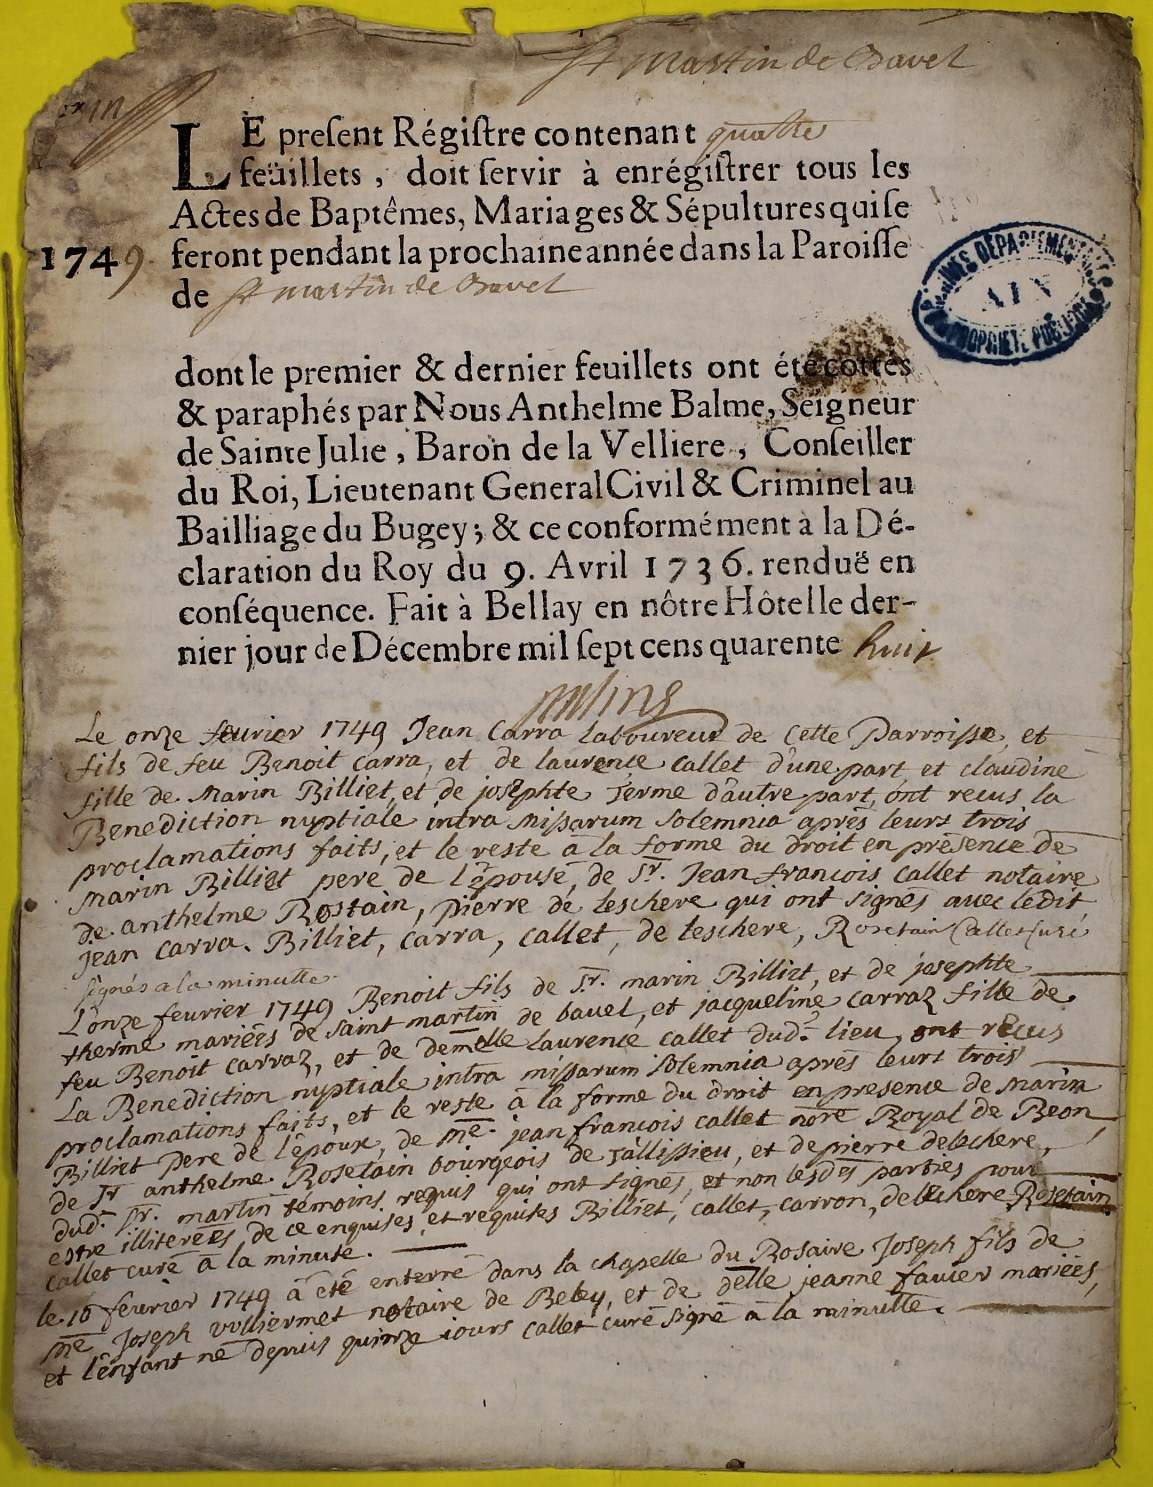 St Martin de Bavel
LE preſent Régiſtre contenant quatre
feüillets, doit ſervir à enrégiſtrer tous les
Actes de Baptêmes, Mariages & Sépultures qui ſe
1749 feront pendant la prochaine année dans la Paroiſſe
de St Martin de Bavel
ARCHIVES DÉPARTEMENTALES
AIN
PROPRIÉTÉ PUBLIQUE
dont le premier & dernier feuillets ont été cottés
& paraphés par Nous Anthelme Balme, Seigneur
de Sainte Julie, Baron de la Velliere, Conſeiller
du Roi, Lieutenant General Civil & Criminel au
Bailliage du Bugey; & ce conformément à la Dé-
claration du Roy du 9. Avril 1736. renduë en
conſéquence. Fait à Bellay en nôtre Hôtel le der-
nier jour de Décembre mil ſept cens quarente huit
Le onze fevrier 1749 Jean Carra laboureur de Cette Parroisse, et
fils de feu Benoit carra, et de laurence callet d'une part, et claudine
fille de Marin Billiet, et de josephte Terme d'autre part, ont recus la
Benediction nuptiale intra missarum solemnia aprês leurs trois
proclamations faits, et le reste â la forme du droit en prêsence de
Marin Billiet pere de l'êpouse, de Sr. Jean francois callet notaire
de anthelme Rostain, pierre de leschere qui ont signês avec ledit
Jean carra. Billiet, carra, callet, de leschere, Rosetain Callet curé
signés a la minutte
L'onze fevrier 1749 Benoit fils de Sr. marin Billiet, et de josephte
therme mariêes de saint martin de bavel, et jacqueline carraz fille de
feu Benoit carraz, et de demelle laurence callet dud. lieu, ont rêcus
La Benediction nuptiale intra missarum solemnia aprês leurs trois
proclamations faits, et le reste â la forme du droit en presence de marin
Billiet Pere de l'êpoux, de Me. jean francois callet nore Royal de Beon,
de Sr anthelme Rosetain bourgeois de Tallissieu, et de pierre deleschere,
dud. St. martin têmoins requis qui ont signês, et non lesdes parties pour
estre illiterêes de ce enquises et requises Billiet, callet, carron, deleschere Rosetain
callet curê â la minute.
le 16 fevrier 1749 â êtê enterrê dans la chapelle du Rosaire Joseph fils de
Me Joseph vulliermet notaire de Beley, et de delle jeanne favier mariêes,
et l'ênfant nê depuis quinze iours callet curê signê â la minutte.